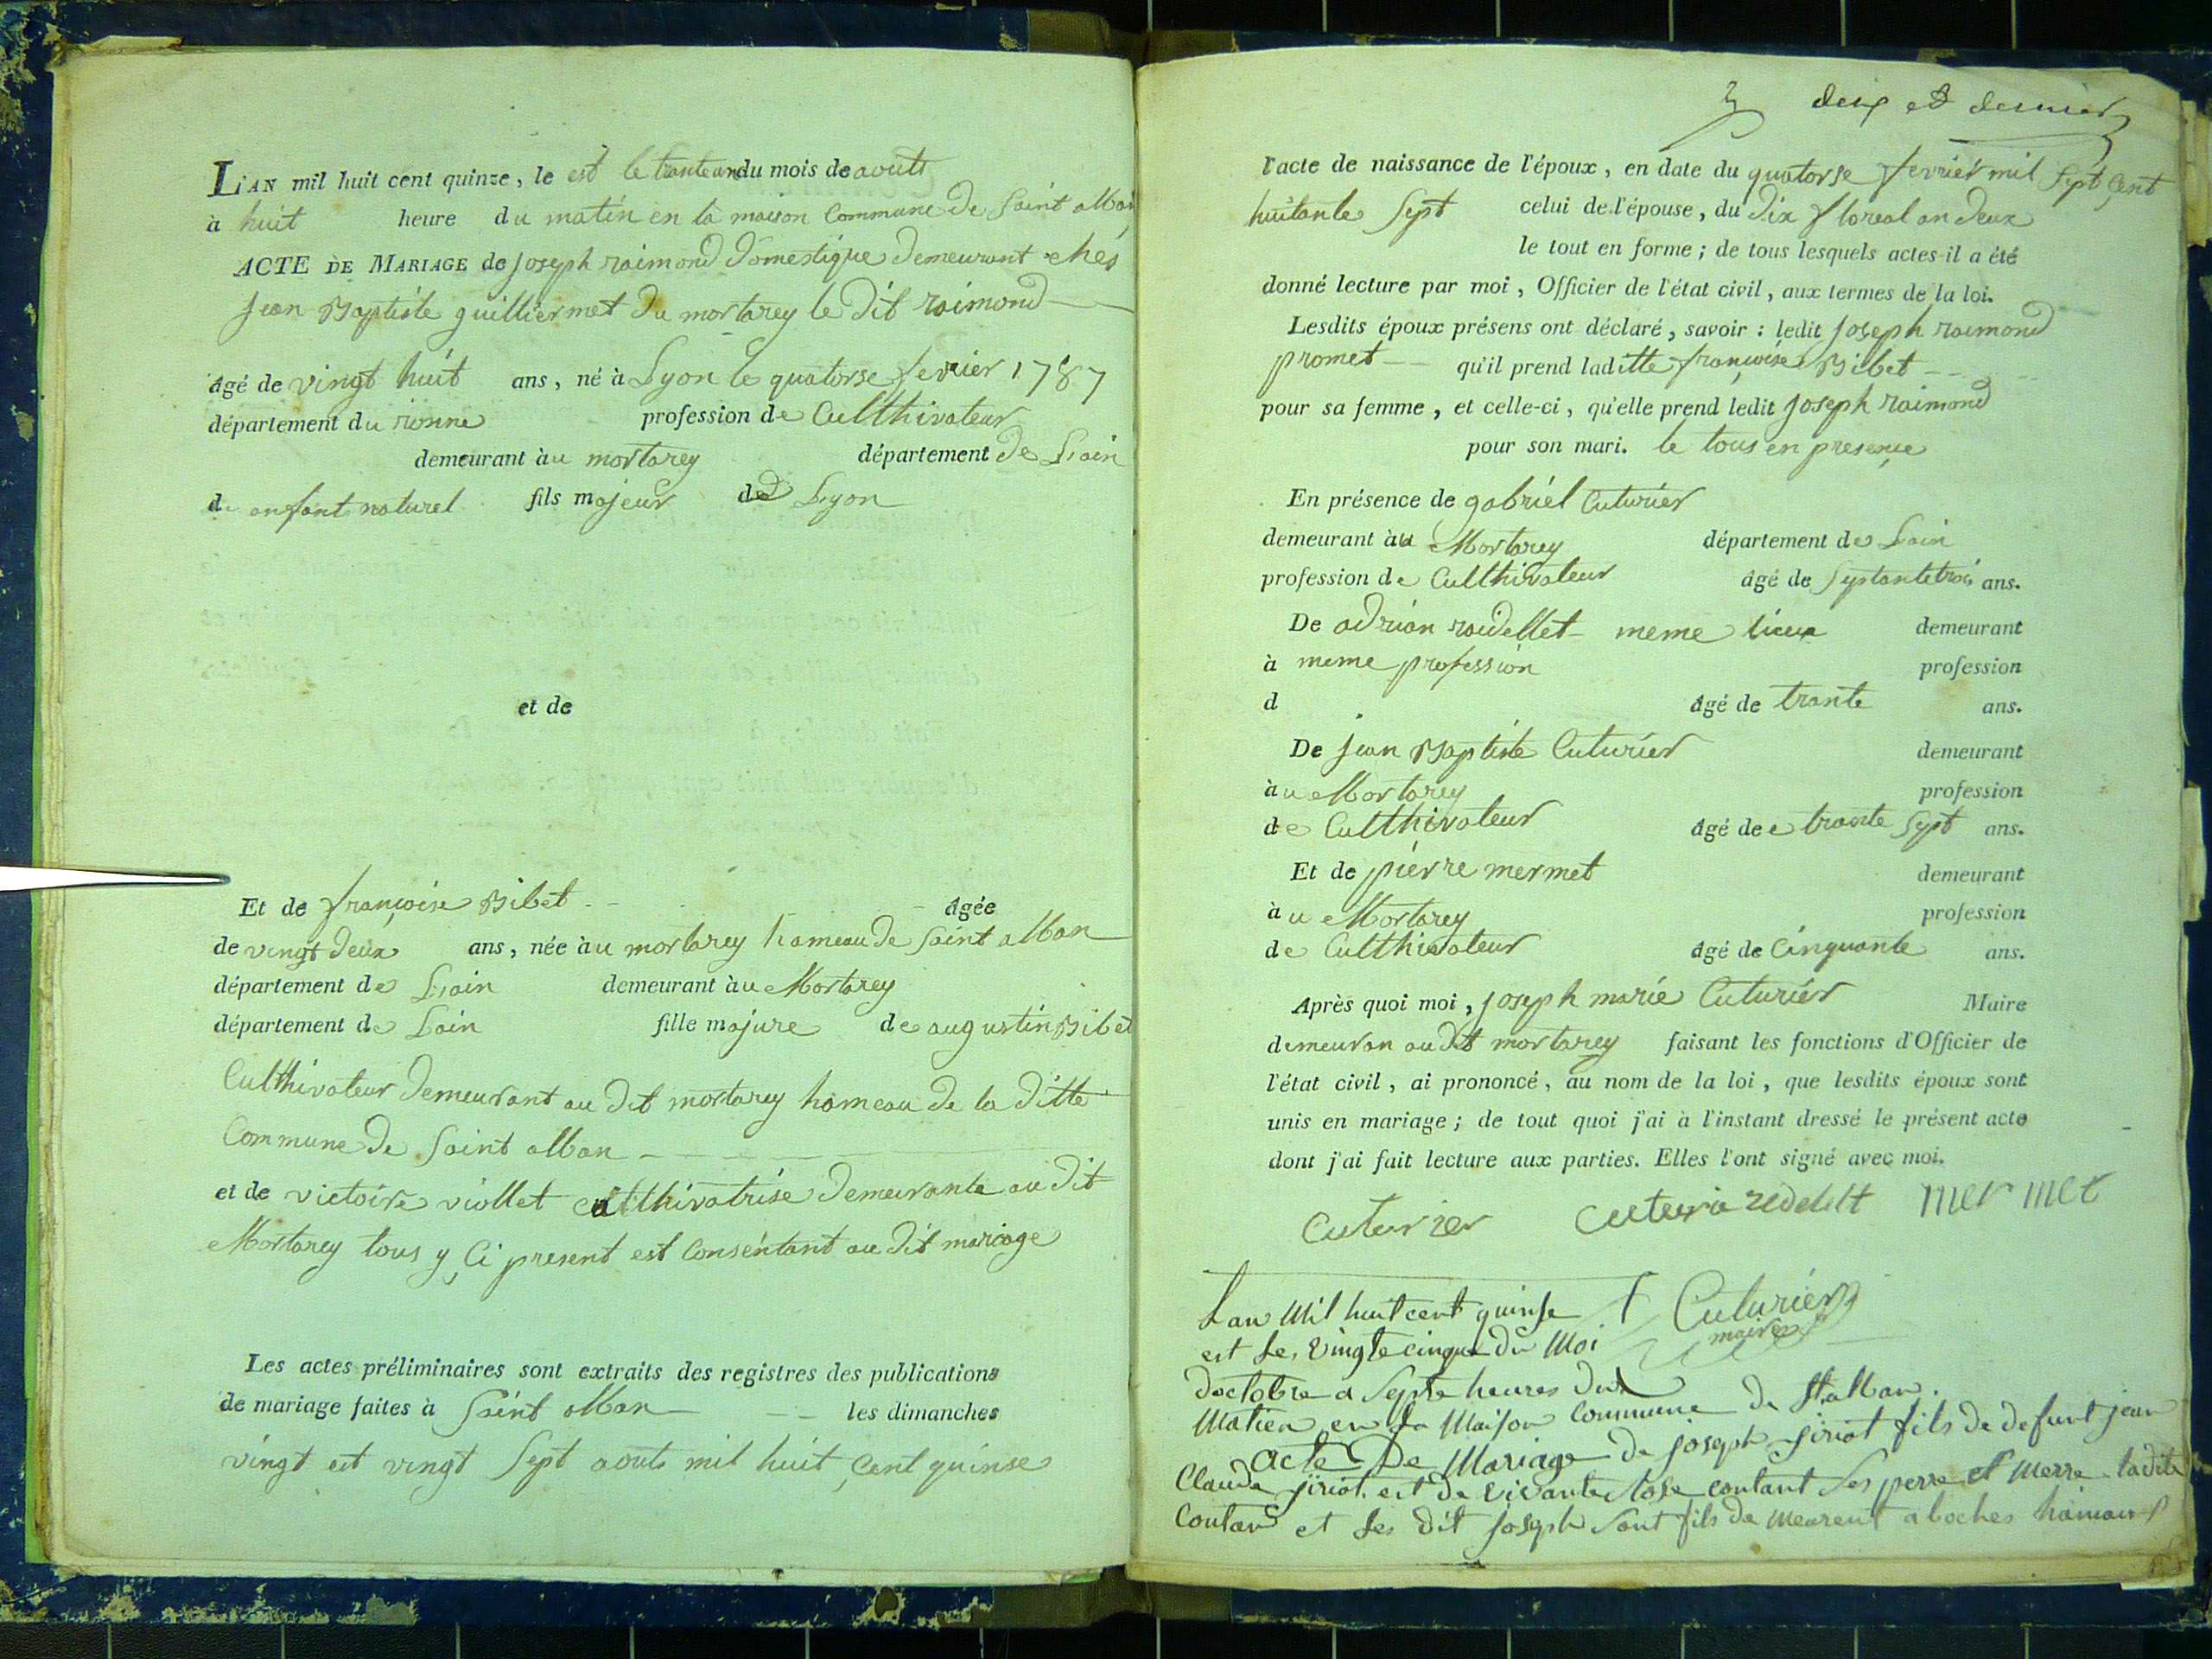 L'AN mil huit cent quinze, le est le tranteun du mois de aouts
à huit heure du matin en la maison Commune de Saint alban
ACTE DE MARIAGE de joseph raimond domestique demeurant chés
jean Baptiste guilliermet du mortarey le dit raimond
âgé de vingt huit ans, né à Lyon le quatorse fevrier 1787
département du ronne profession de Cultthivateur
demeurant à au mortarey département de Lain
d. enfant naturel fils majeur de Lyon
et de
Et de françoise Bibet âgée
de vingt deux ans, née à au mortarey hameau de Saint alban
département de Lain demeurant à au Mortarey
département de Lain fille majure de augustin Bibet
Cultthivateur demeurant au dit mortarey hameau de la ditte
Commune de Saint alban
et de victoire viollet cultthivatrise demeurante au dit
Mortarey tous y Ci present est Consentant au dit mariage
Les actes préliminaires sont extraits des registres des publications
de mariage faites à Saint alban les dimanches
vingt est vingt Sept aouts mil huit Cent quinse
deux et dernier
l'acte de naissance de l'époux, en date du quatorse fevrier mil Sept Cent
huitante Sept celui de l'épouse, du dix floreal an deux
le tout en forme; de tous lesquels actes il a été
donné lecture par moi, Officier de l'état civil, aux termes de la loi.
Lesdits époux présens ont déclaré, savoir: ledit joseph raimond
promet qu'il prend laditte françoise Bibet
pour sa femme, et celle-ci, qu'elle prend ledit joseph raimond
pour son mari. le tous en presençe
En présence de gabriel Cuturier
demeurant à au Mortarey département de Lain
profession de Cultthivateur âgé de Septantetrois ans.
De adrian raudellet meme lieux demeurant
à meme profession profession
d âgé de trante ans.
De jean Baptiste Cuturier demeurant
à u Mortarey profession
de Cultthivateur âgé de trante Sept ans.
Et de pierre mermet demeurant
à u Mortarey profession
de Cultthivateur âgé de Cinquante ans.
Après quoi moi, joseph marie Cuturier Maire
demeuran au dit mortarey faisant les fonctions d'Officier de
l'état civil, ai prononcé, au nom de la loi, que lesdits époux sont
unis en mariage; de tout quoi j'ai à l'instant dressé le présent acte
dont j'ai fait lecture aux parties. Elles l'ont signé avec moi.
Cuturier mer met
Cuturier
maire
Lan Mil huit cent quinse
est les vingte cinque du Moi
doctobre a Septe heures du
Matien en la Maison Commune de St alban.
acte De Mariage de joseph jiriot fils de defunt jean
Claude jiriot est de vivante Rose contant ses perre et merre ladite
Contan et les dit joseph sont fils de meurent a boches hamau